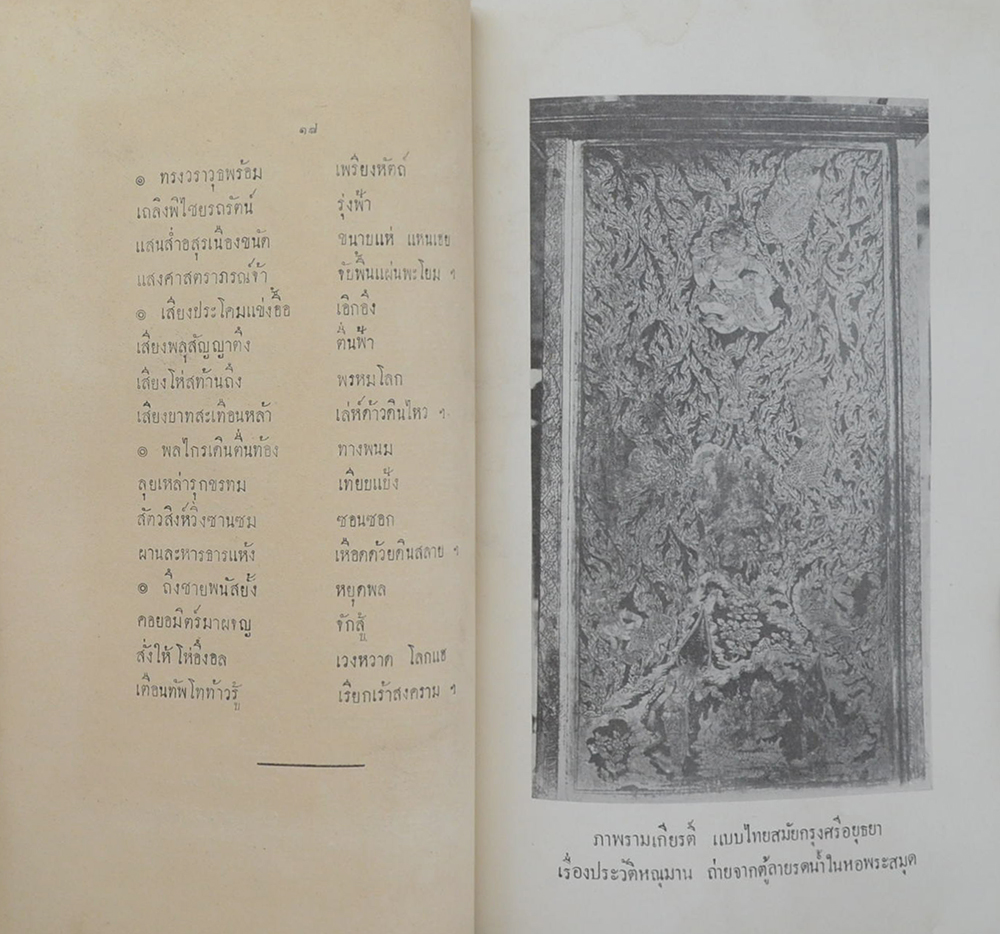 ๑๗
๏ ทรงวราวุธพร้อม เพรียงหัตถ์
เถลิงพิไชยรถรัตน์ รุ่งฟ้า
แสนส่ำอสุรเนืองขนัด ขนายแห่ แหนเฮย
แสงศาสตราภรณ์จ้า จับพื้นแผ่นพะโยม ฯ
๏ เสียงประโคมแซ่งอื้อ เอิกอึง
เสียงพลุสัญญาตึง ตื่นฟ้า
เสียงโห่สท้านถึง พรหมโลก
เสียงยาทสะเทือนหล้า เล่ห์ด้าวดินไหว ฯ
๏ พลไกรเดินตื่นท้อง ทางพนม
ลุยเหล่ารุกขรทม เทียบแย้ง
สัตวสิงห์วิ่งซานซม ซอนซอก
ผานละหารธารแห้ง เหือดด้วยดินสลาย ฯ
๏ ถึงชายพนัสยั้ง หยุดพล
คอยอมิตร์มาผจญ จักสู้
สั่งให้โห่อึงอล เวงหวาด โลกแฮ
เตือนทัพโทท้าวรู้ เรียกเร้าสงคราม ฯ
ภาพรามเกียรติ์ แบบไทยสมัยกรุงศรีอยุธยา
เรื่องประวัติหณุมาน ถ่ายจากตู้ลายรดน้ำในหอพระสมุด